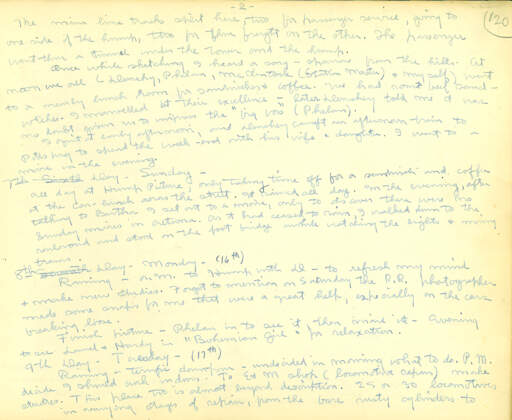 - 2 -
120
The main line tracks split here, two for passenger service, going to
one side of the hump, two for thru freight on the other. The passenger
went thru a tunnel under the tower and the hump.
Once while sketching I heard a song - from the hills. At
noon we all (Blenchey, Phelan, McClintock (Station Master) & myself) went
to a nearby lunch room for sandwiches & coffee. We had roast beef sand-
wiches. I marvelled at their excellence - later told me it was
no doubt given us to impress the "big boss" (Phelan).
I quit early afternoon, and caught an afternoon train to
Pittsburg to spend the week-end with his wife & daughter. I went to a
movie in the evening.
7th Day. Sunday -
All day at Hump Picture, only taking time off for a sandwich and coffee
at the car lunch across the street. Rained all day. In the evening, after
talking to Bertha I set out to a movie, only to discover there were no
Sunday movies in Altoona. As it had ceased to rain, I walked down to the
railroad and stood on the foot bridge while watching the lights & moving
trains.
8th Day - Monday - (16th)
Raining - A.M. to Hump with - to refresh my mind
& make new studies. Forgot to mention on Saturday the R.R. photographer
made some snaps for me that were a great help, especially on the cars
breaking loose.
Finish picture - Phelan in to see it then mine it - Evening
to see Laurel & Hardy in "Bohemian Girl" for relaxation.
9th Day - Tuesday - (17th)
Raining - terrific downpour - undecided in morning what to do. P.M.
decide I should work indoors. To E & M shop (locomotive repair) make
studies. This place too is almost beyond description. 25 or 30 locomotives
in varying stages of repair, from the bare rusty cylinders to